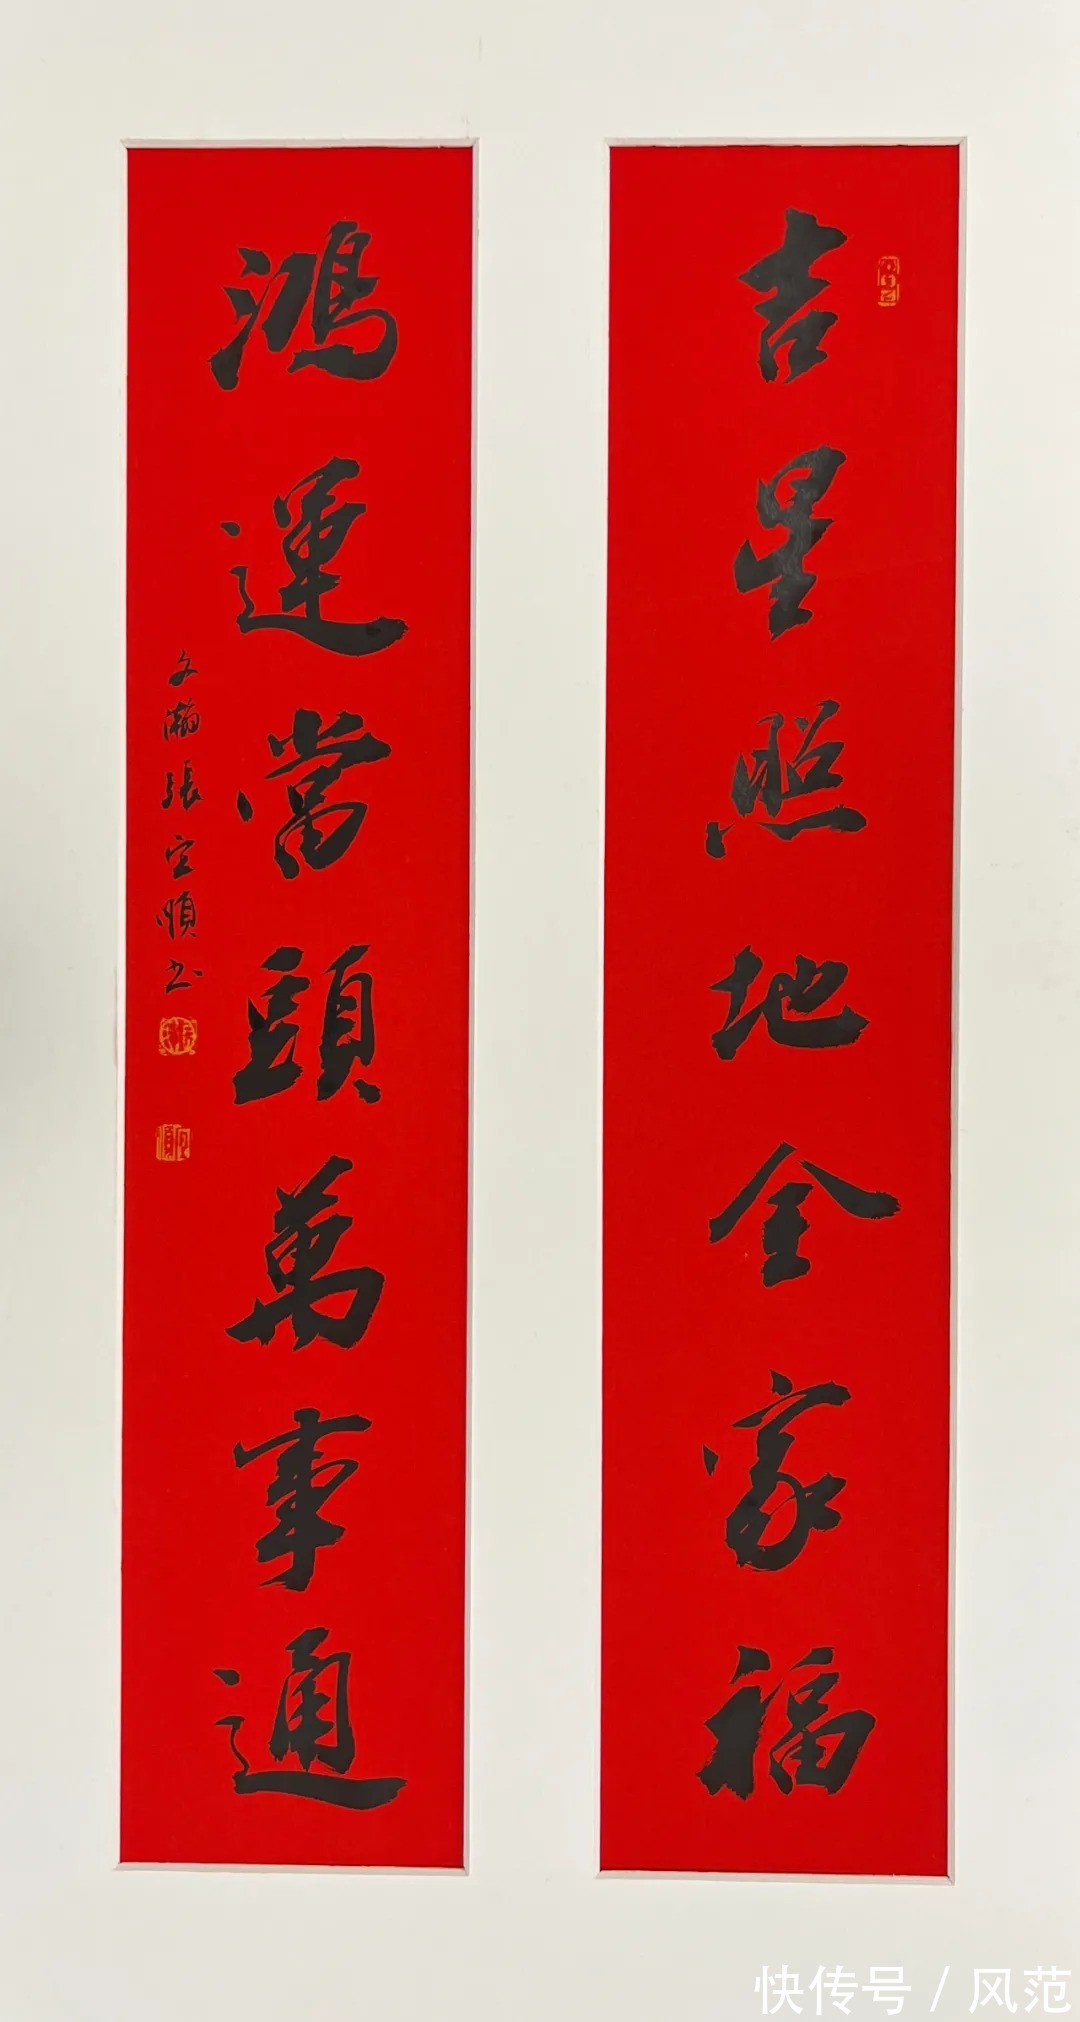 吉星照地金家福
鴻運當頭萬事通
文瀚張宝順书
快传号 / 风范